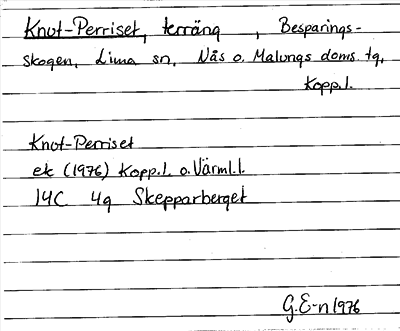 Knut-Perriset, terräng, Besparings-
skogen, Lima sn, Nås o. Malungs doms. tg,
Kopp.l.
Knut-Perriset
ek (1976) Kopp.l. o. Värml.l.
14C 4g Skepparberget
G.E-n 1976